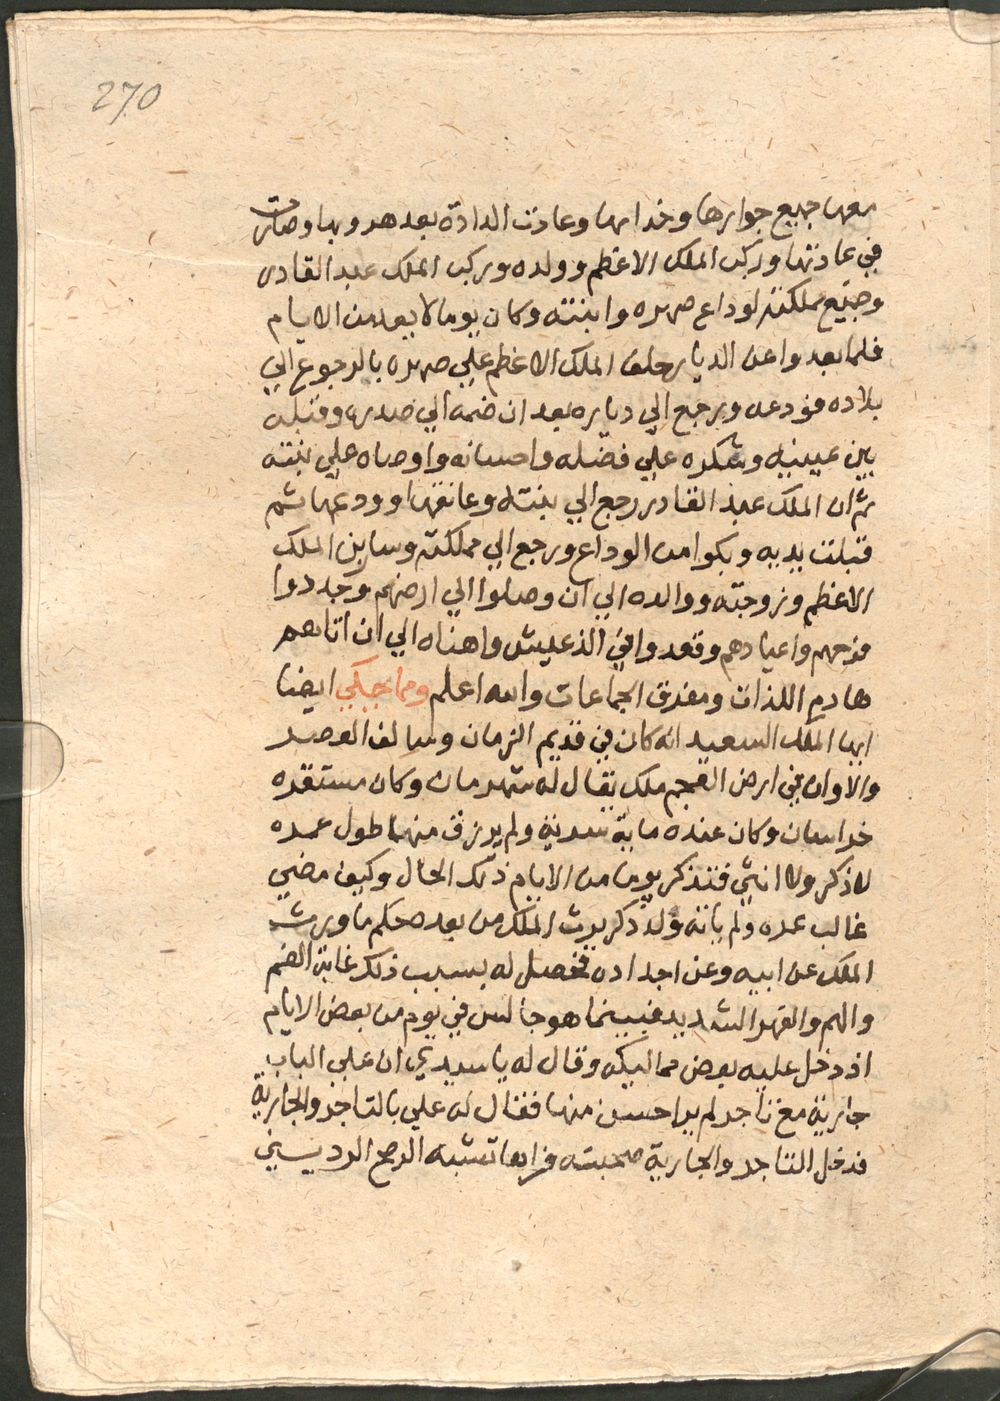 270
معها جميع جوارها وخدامها وعادت الدادة بعد هروبها وصارت
في عادتها وركب الملك الاعظم وولده وركب الملك عبد القادر
وجميع مملكته لوداع صهره وابنته وكان يوما لا يعد من الايام
فلما بعدوا عن الديار حلف الملك الاعظم علي صهره بالرجوع الي
بلاده فودعه ورجع الي دياره بعد ان ضمه الي صدره وقبله
بين عينيه وشكره علي فضله واحسانه واوصاه علي بنته
ثم ان الملك عبد القادر رجع الي بنته وعانقها وودعها ثم
قبلت يديه وبكوا من الوداع ورجع الي مملكته وسار بن الملك
الاعظم وزوجته ووالده الي ان وصلوا الي ارضهم وجددوا
فرحهم واعيادهم وقعدوا في الذ عيش واهناه الي ان اتاهم
هادم اللذات ومفرق الجماعات والله اعلم ومما يحكي ايضا
ايها الملك السعيد انه كان في قديم الزمان وسالف العصر
والاوان في ارض العجم ملك يقال له شهرمان وكان مستقره
خراسان وكان عنده ماية سرية ولم يرزق منهما طول عمره
لا ذكر ولا انثي فتذكر يوما من الايام ذلك الحال وكيف مضي
غالب عمره ولم ياته ولد ذكر يرث الملك من بعده كما ورث
الملك عن ابيه وعن اجداده فحصل له بسبب ذلك غاية الغم
والهم والقهر الشديد فبينما هو جالس في يوم من بعض الايام
اذ دخل عليه بعض مماليكه وقال له يا سيدي ان علي الباب
جارية مع تاجر لم ير احسن منها فقال له علي بالتاجر والجارية
فدخل التاجر والجارية صحبته فراها تشبه الرمح الرديني